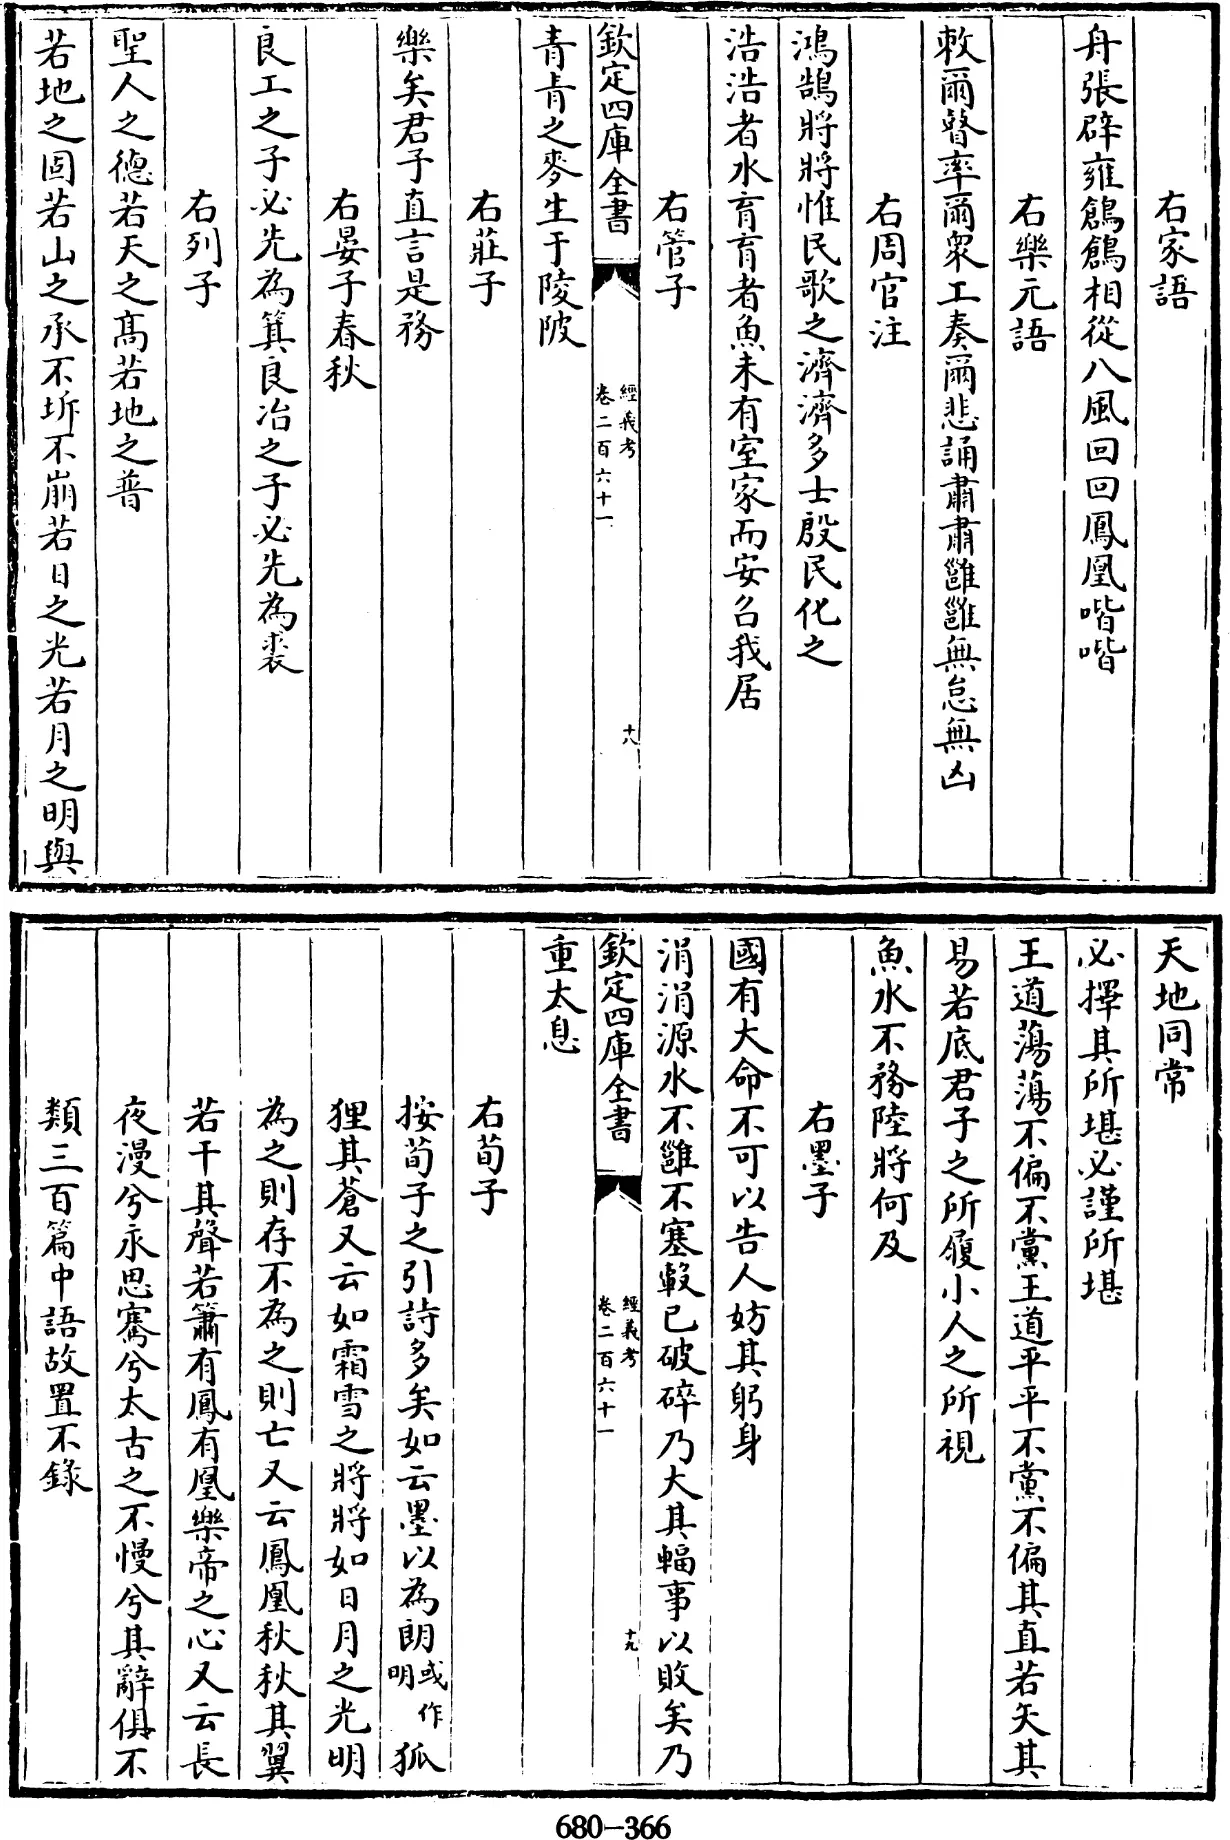 右家語
舟張辟雍鶬鶬相從八風回回鳳凰喈喈
右樂元語
敕爾瞽率爾衆工奏爾悲誦肅肅雝雝無怠無凶
右周官注
鴻鵠將將惟民歌之濟濟多士殷民化之
浩浩者水育育者魚未有室家而安召我居
右管子
欽定四庫全書
經義考
卷二百六十一
十八
青青之麥生于陵陂
右莊子
樂矣君子直言是務
右晏子春秋
良工之子必先為箕良冶之子必先為裘
右列子
聖人之德若天之高若地之普
若地之固若山之承不坼不崩若日之光若月之明與
天地同常
必擇其所堪必謹所堪
王道蕩蕩不偏不黨王道平平不黨不偏其直若矢其
易若底君子之所履小人之所視
魚水不務陸將何及
右墨子
國有大命不可以告人妨其躬身
涓涓源水不雝不塞轂已破碎乃大其輻事以敗矣乃
欽定四庫全書
經義考
卷二百六十一
十九
重太息
右荀子
按荀子之引詩多矣如云墨以為朗或作明狐
狸其蒼又云如霜雪之將將如日月之光明
為之則存不為之則亡又云鳳凰秋秋其翼
若干其聲若簫有鳳有凰樂帝之心又云長
夜漫兮永思騫兮太古之不慢兮其辭俱不
類三百篇中語故置不錄
680-366